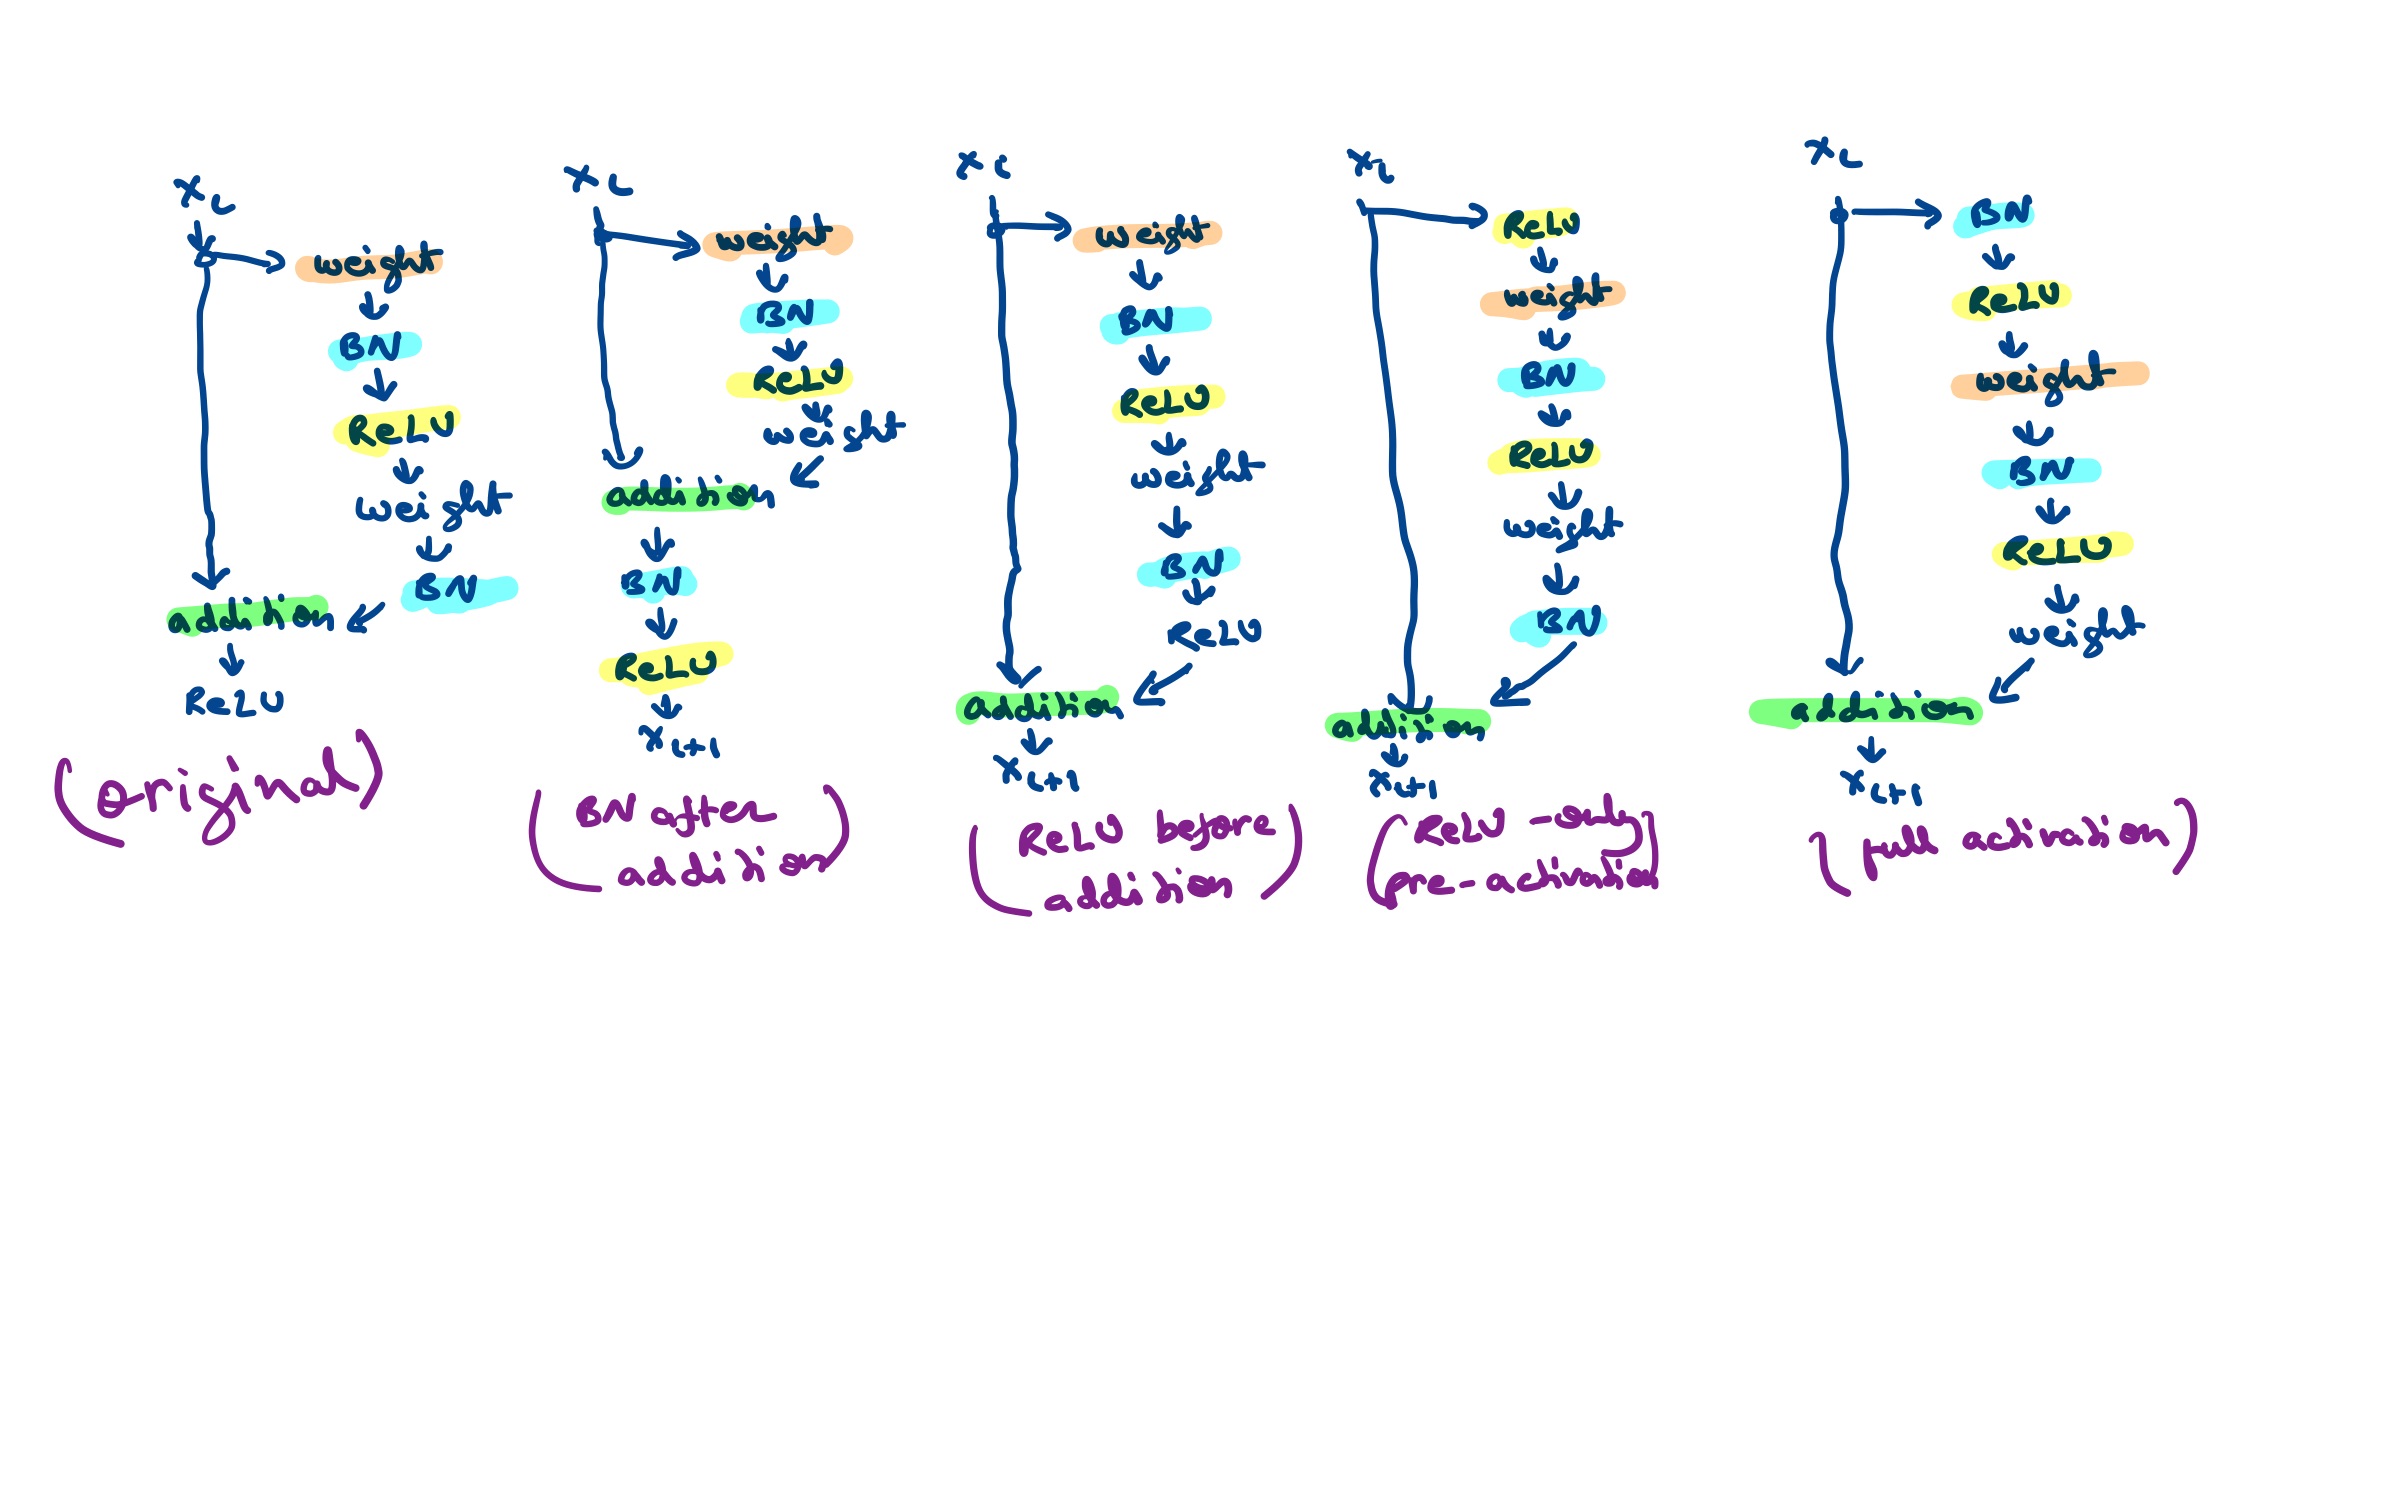 x_L
weight
BN
ReLU
weight
BN
addition
ReLU
(original)
x_L
weight
BN
ReLU
weight
addition
BN
ReLU
x_L+1
(BN after
addition)
x_L
weight
BN
ReLU
weight
BN
ReLU
addition
x_L+1
(ReLU before
addition)
x_L
ReLU
weight
BN
ReLU
weight
BN
addition
x_L+1
(ReLU-only
pre-activation)
x_L
BN
ReLU
weight
BN
ReLU
weight
addition
x_L+1
(full activation)